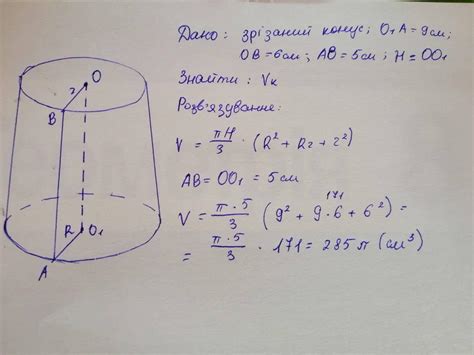 Дано: зрізаний конус; O₁A = 9см;
OB = 6см; AB = 5см; H = OO₁
Знайти: Vк
Розв'язування:
V = πH/3 · (R² + Rr + r²)
AB = OO₁ = 5см
V = π·5/3 (9² + 9·6 + 6²) =
171
= π·5/3 · 171 = 285π (см³)
O
r
B
R
O₁
A